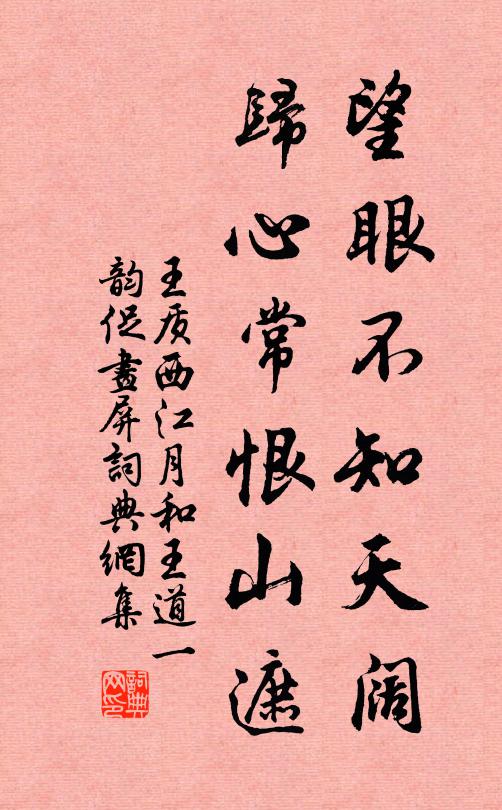 望眼不知天阔
歸心常恨山遮
王质西江月和王道一
韵促畫屏詞典網集
詞典
网印